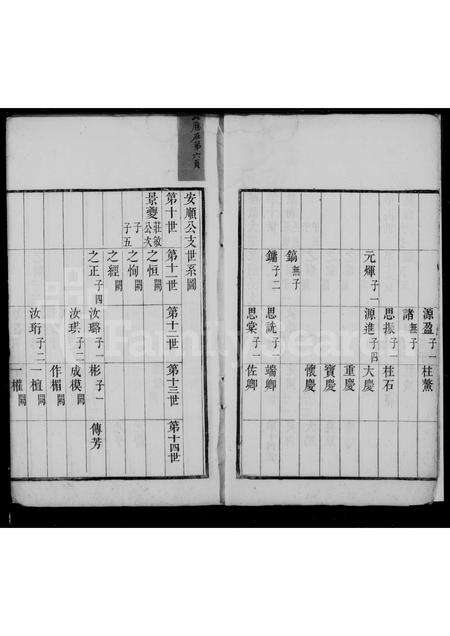 源盈子一 柱鰲
諸無子
思振子一 柱石
元煇子一 源進子四 大慶
重慶
寶慶
鎬無子 懷慶
鏞子二 思詵子一 端卿
思棠子一 佐卿
安順公支世系圖
第十世 第十一世 第十二世 第十三世 第十四世
景夔莊敏公次子子五 之恒闕
之恂闕
之經闕
之正子四 汝璐子一 彬子一 傳芳
汝琪子二 成模闕
作楣闕
汝珩子二 一楦闕
一權闕